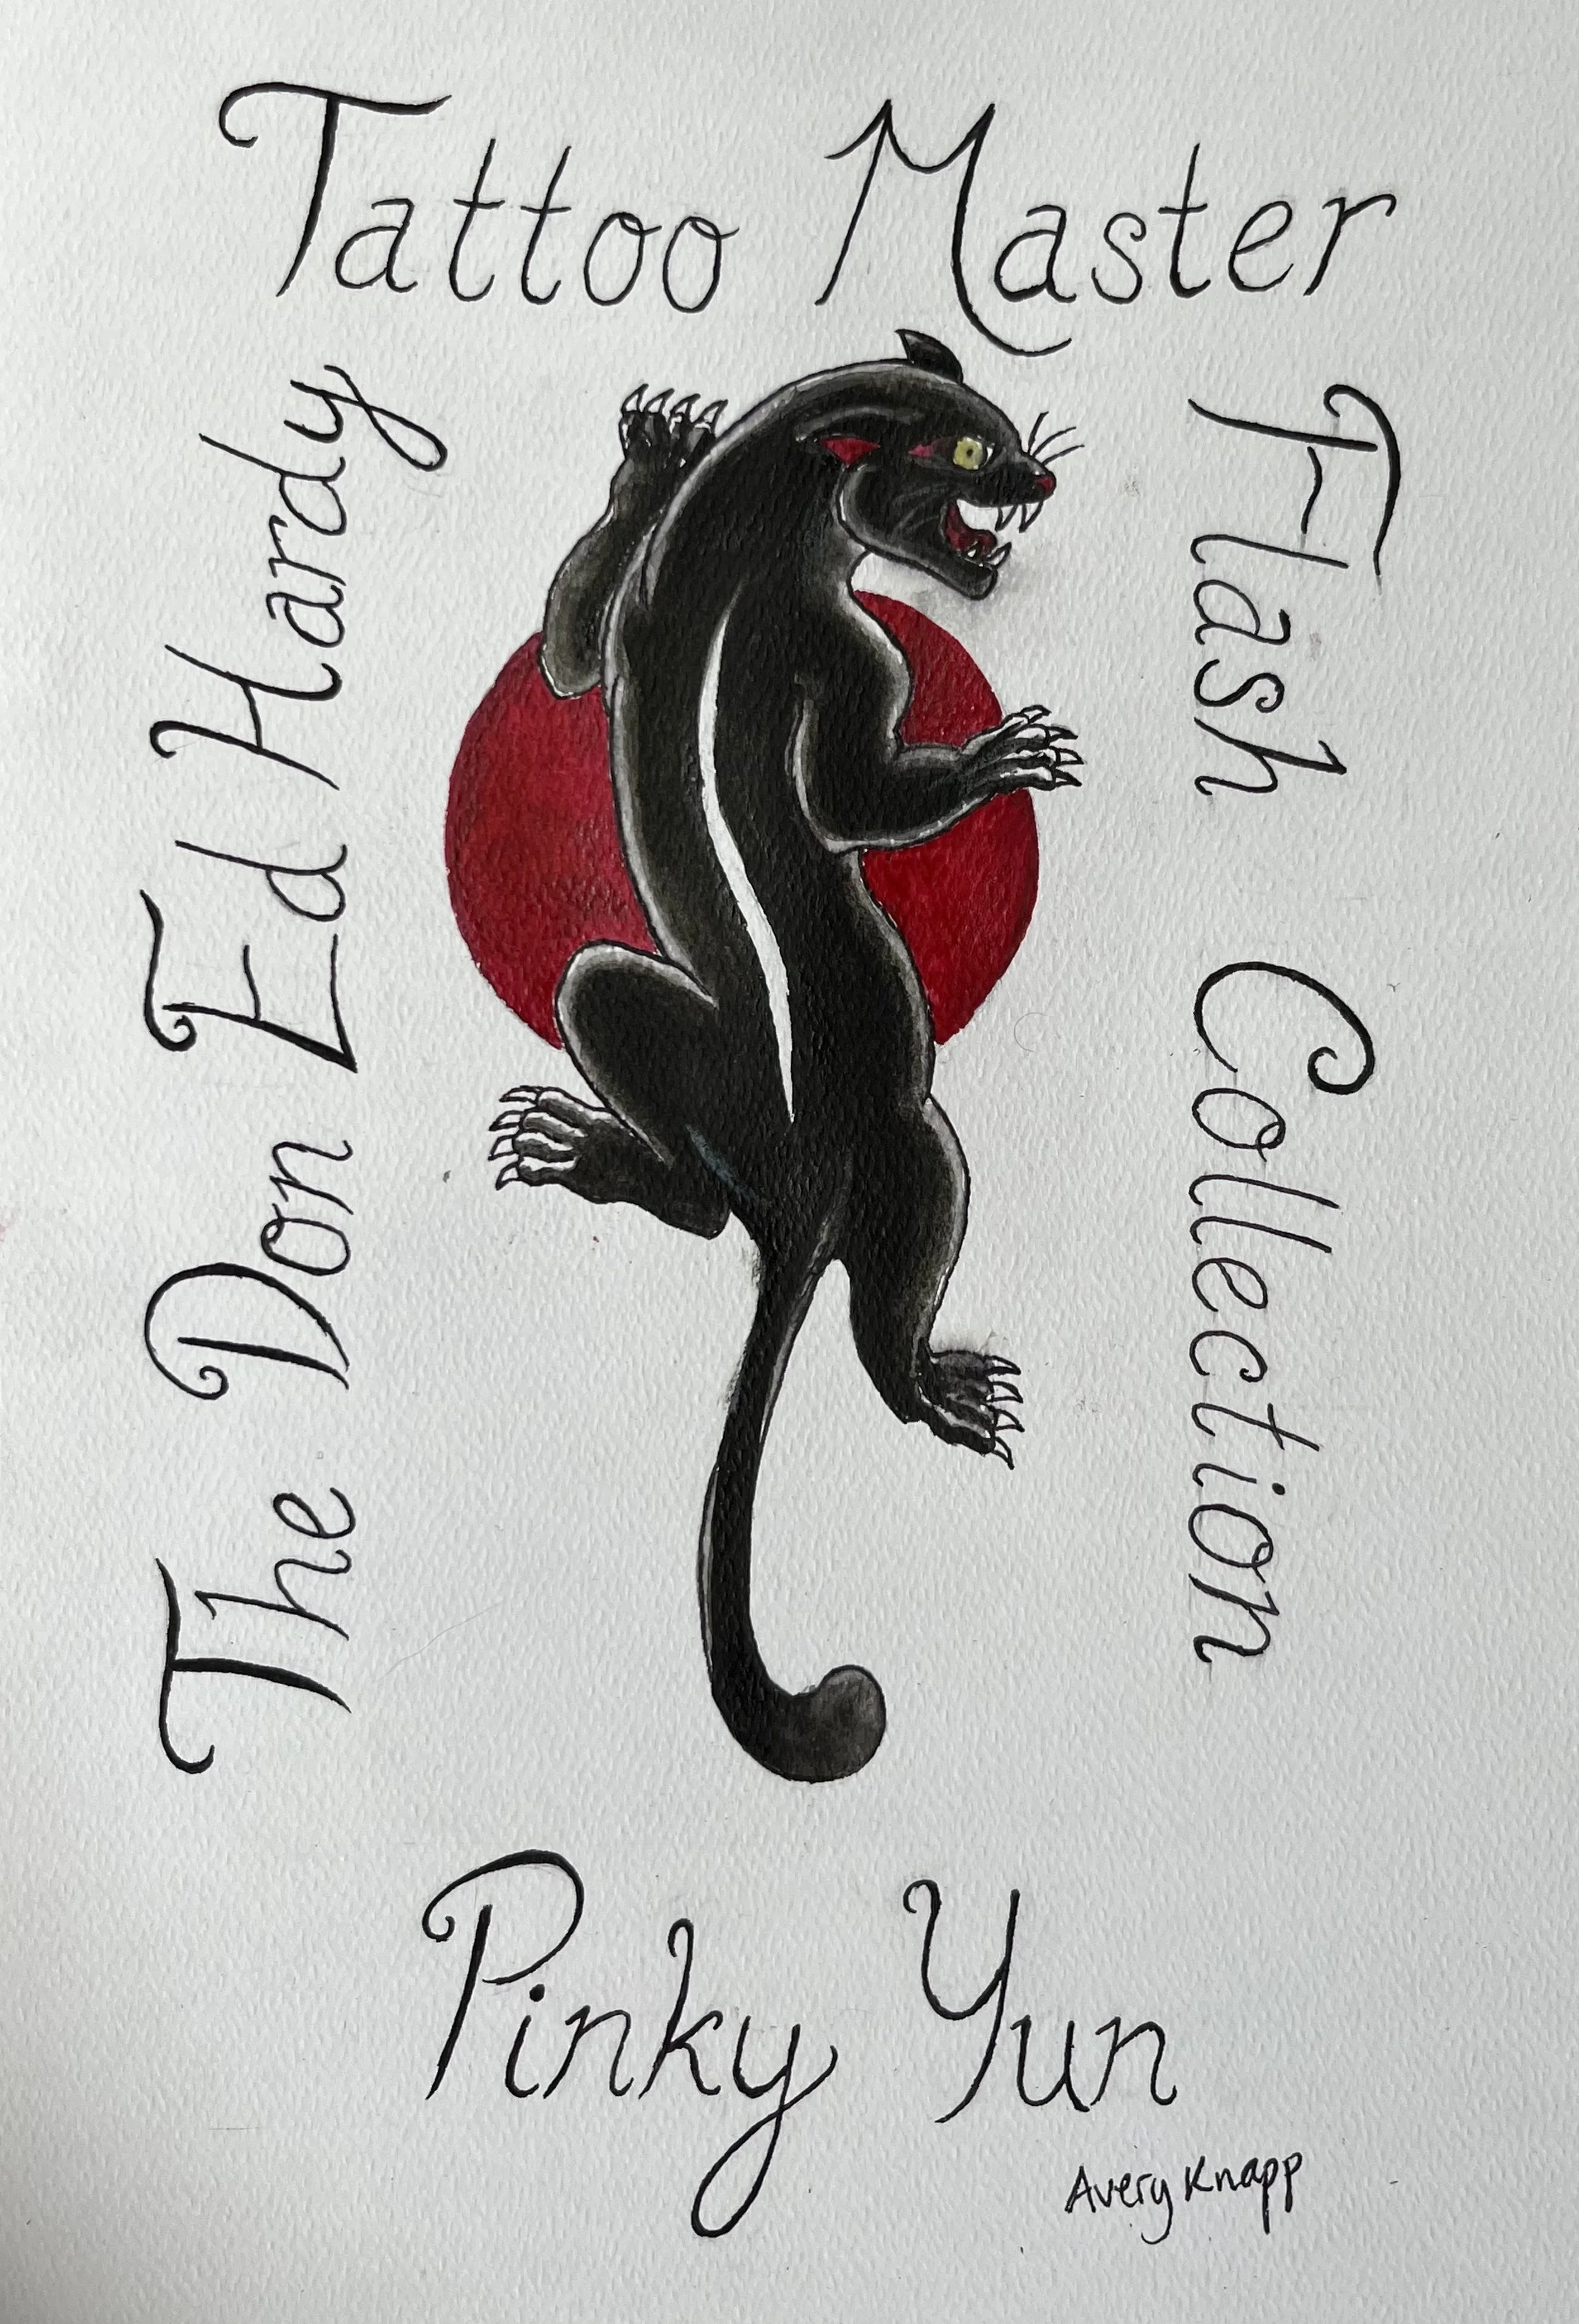 The Don Ed Hardy
Tattoo Master
Flash Collection
Pinky Yun
Avery Knapp